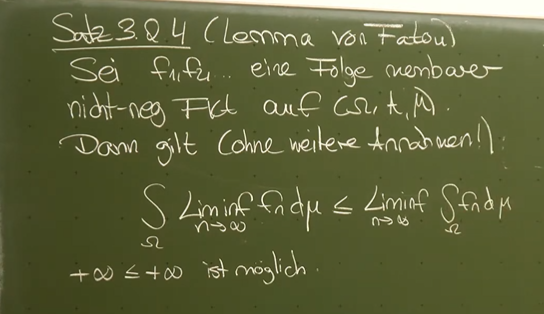 Satz 3.Q.4 (Lemma von Fatou)
Sei f₁, f₂, ... eine Folge messbarer
nicht-neg Fkt auf (Ω, A, μ).
Dann gilt (ohne weitere Annahmen!):
∫_Ω Liminf_{n→∞} fₙ dμ ≤ Liminf_{n→∞} ∫_Ω fₙ dμ
+∞ ≤ +∞ ist möglich.